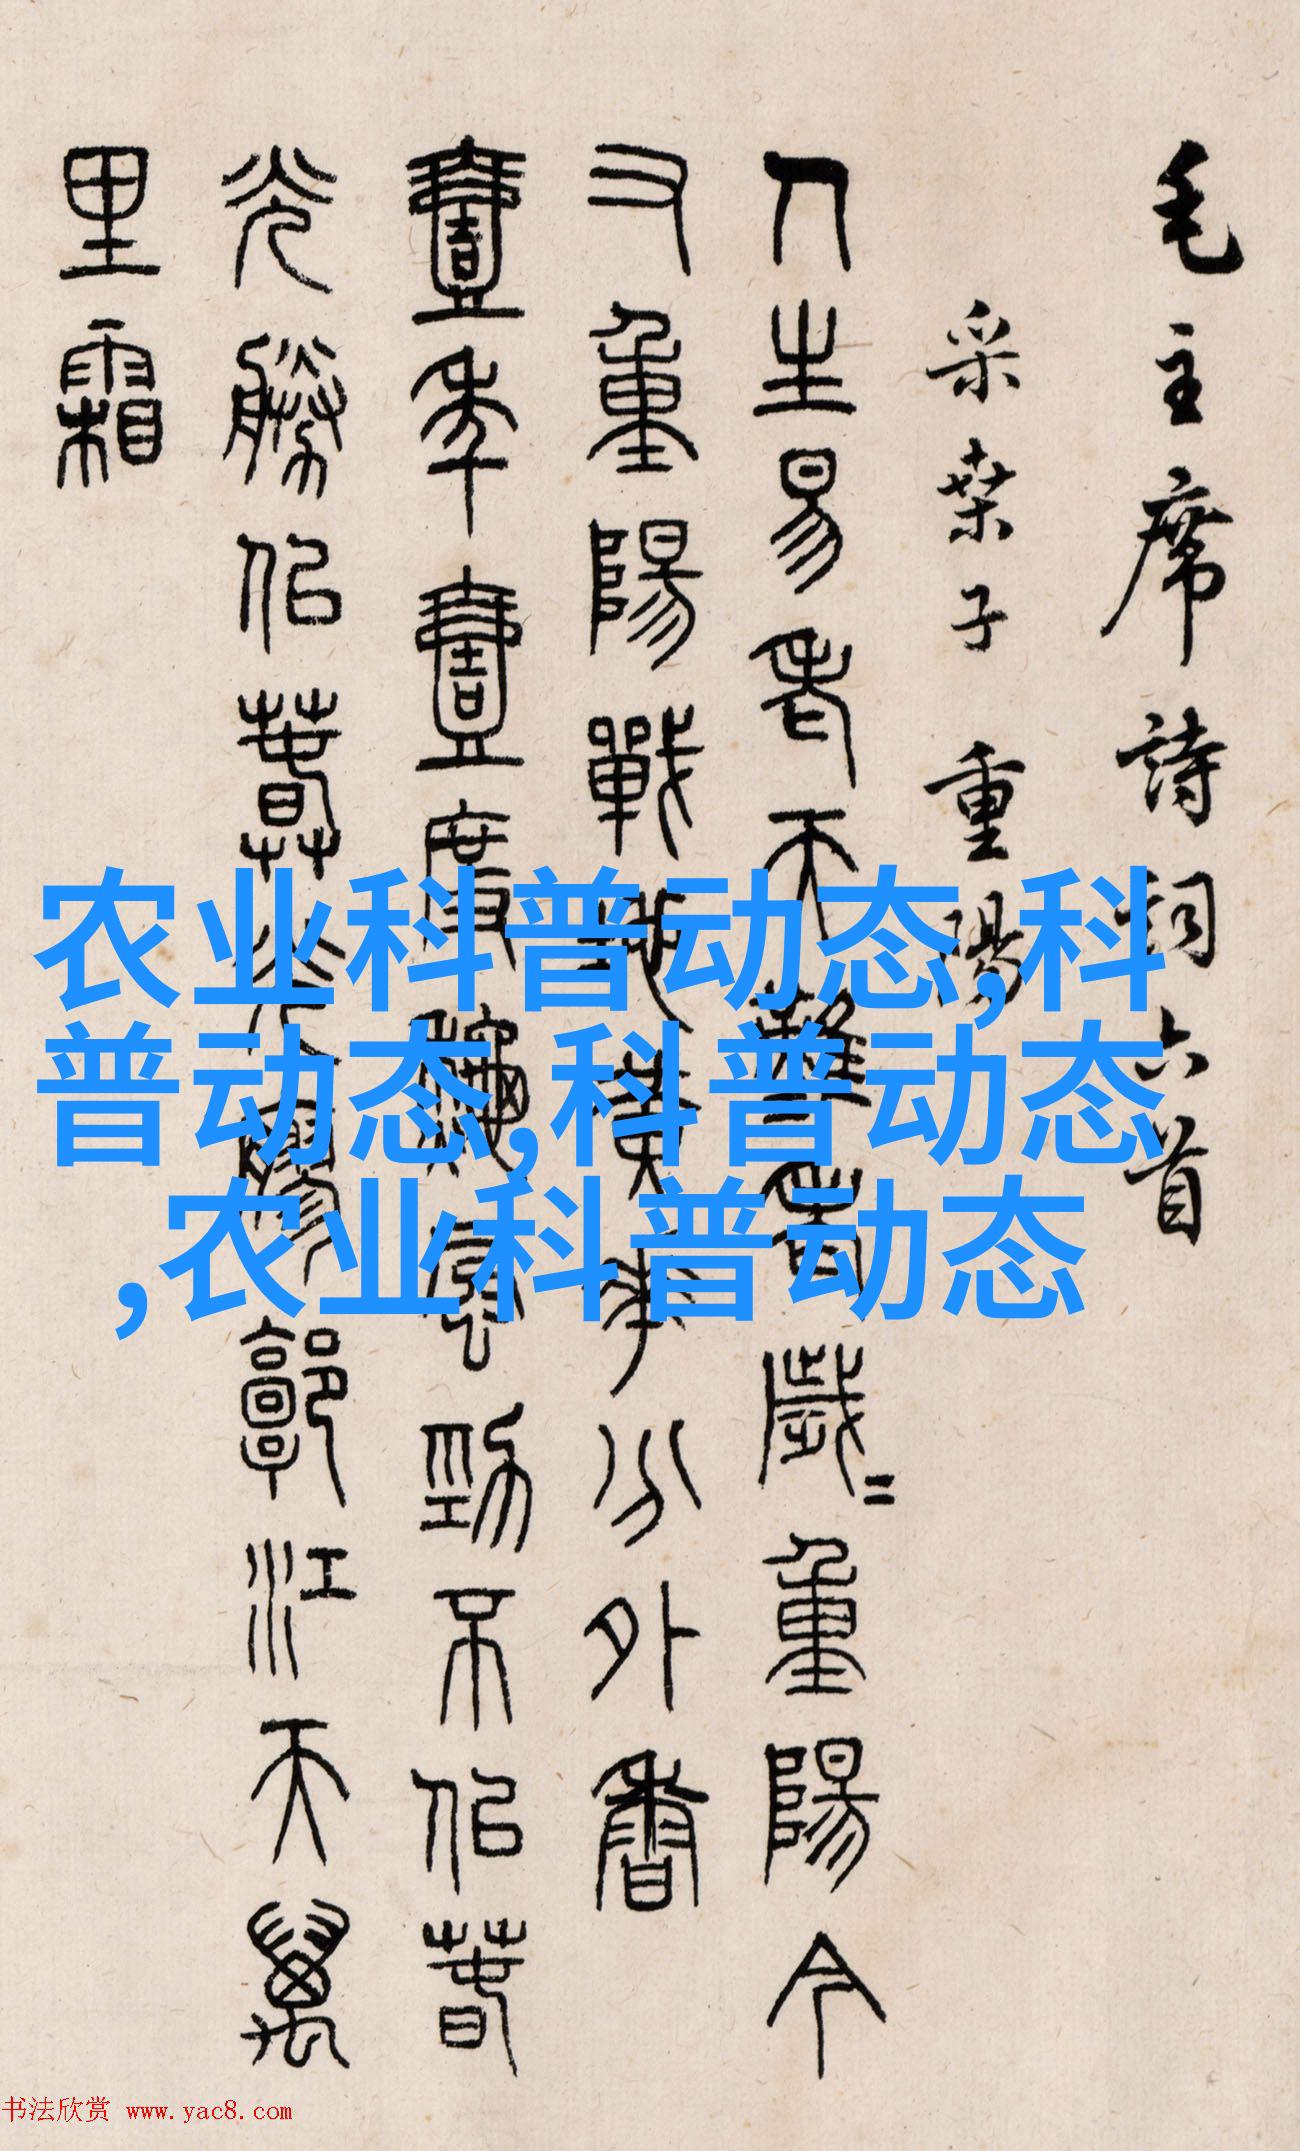 毛主席詩詞六首
采桑子 重陽
人生易老天難老歲〻重陽今
又重陽戰地黄華分外香
壹年壹度龝風勁不佀春
光勝佀春光廖郭江天萬
里霜
农业科普动态,科
普动态,科普动态
,农业科普动态
书法欣赏 www.yac8.com